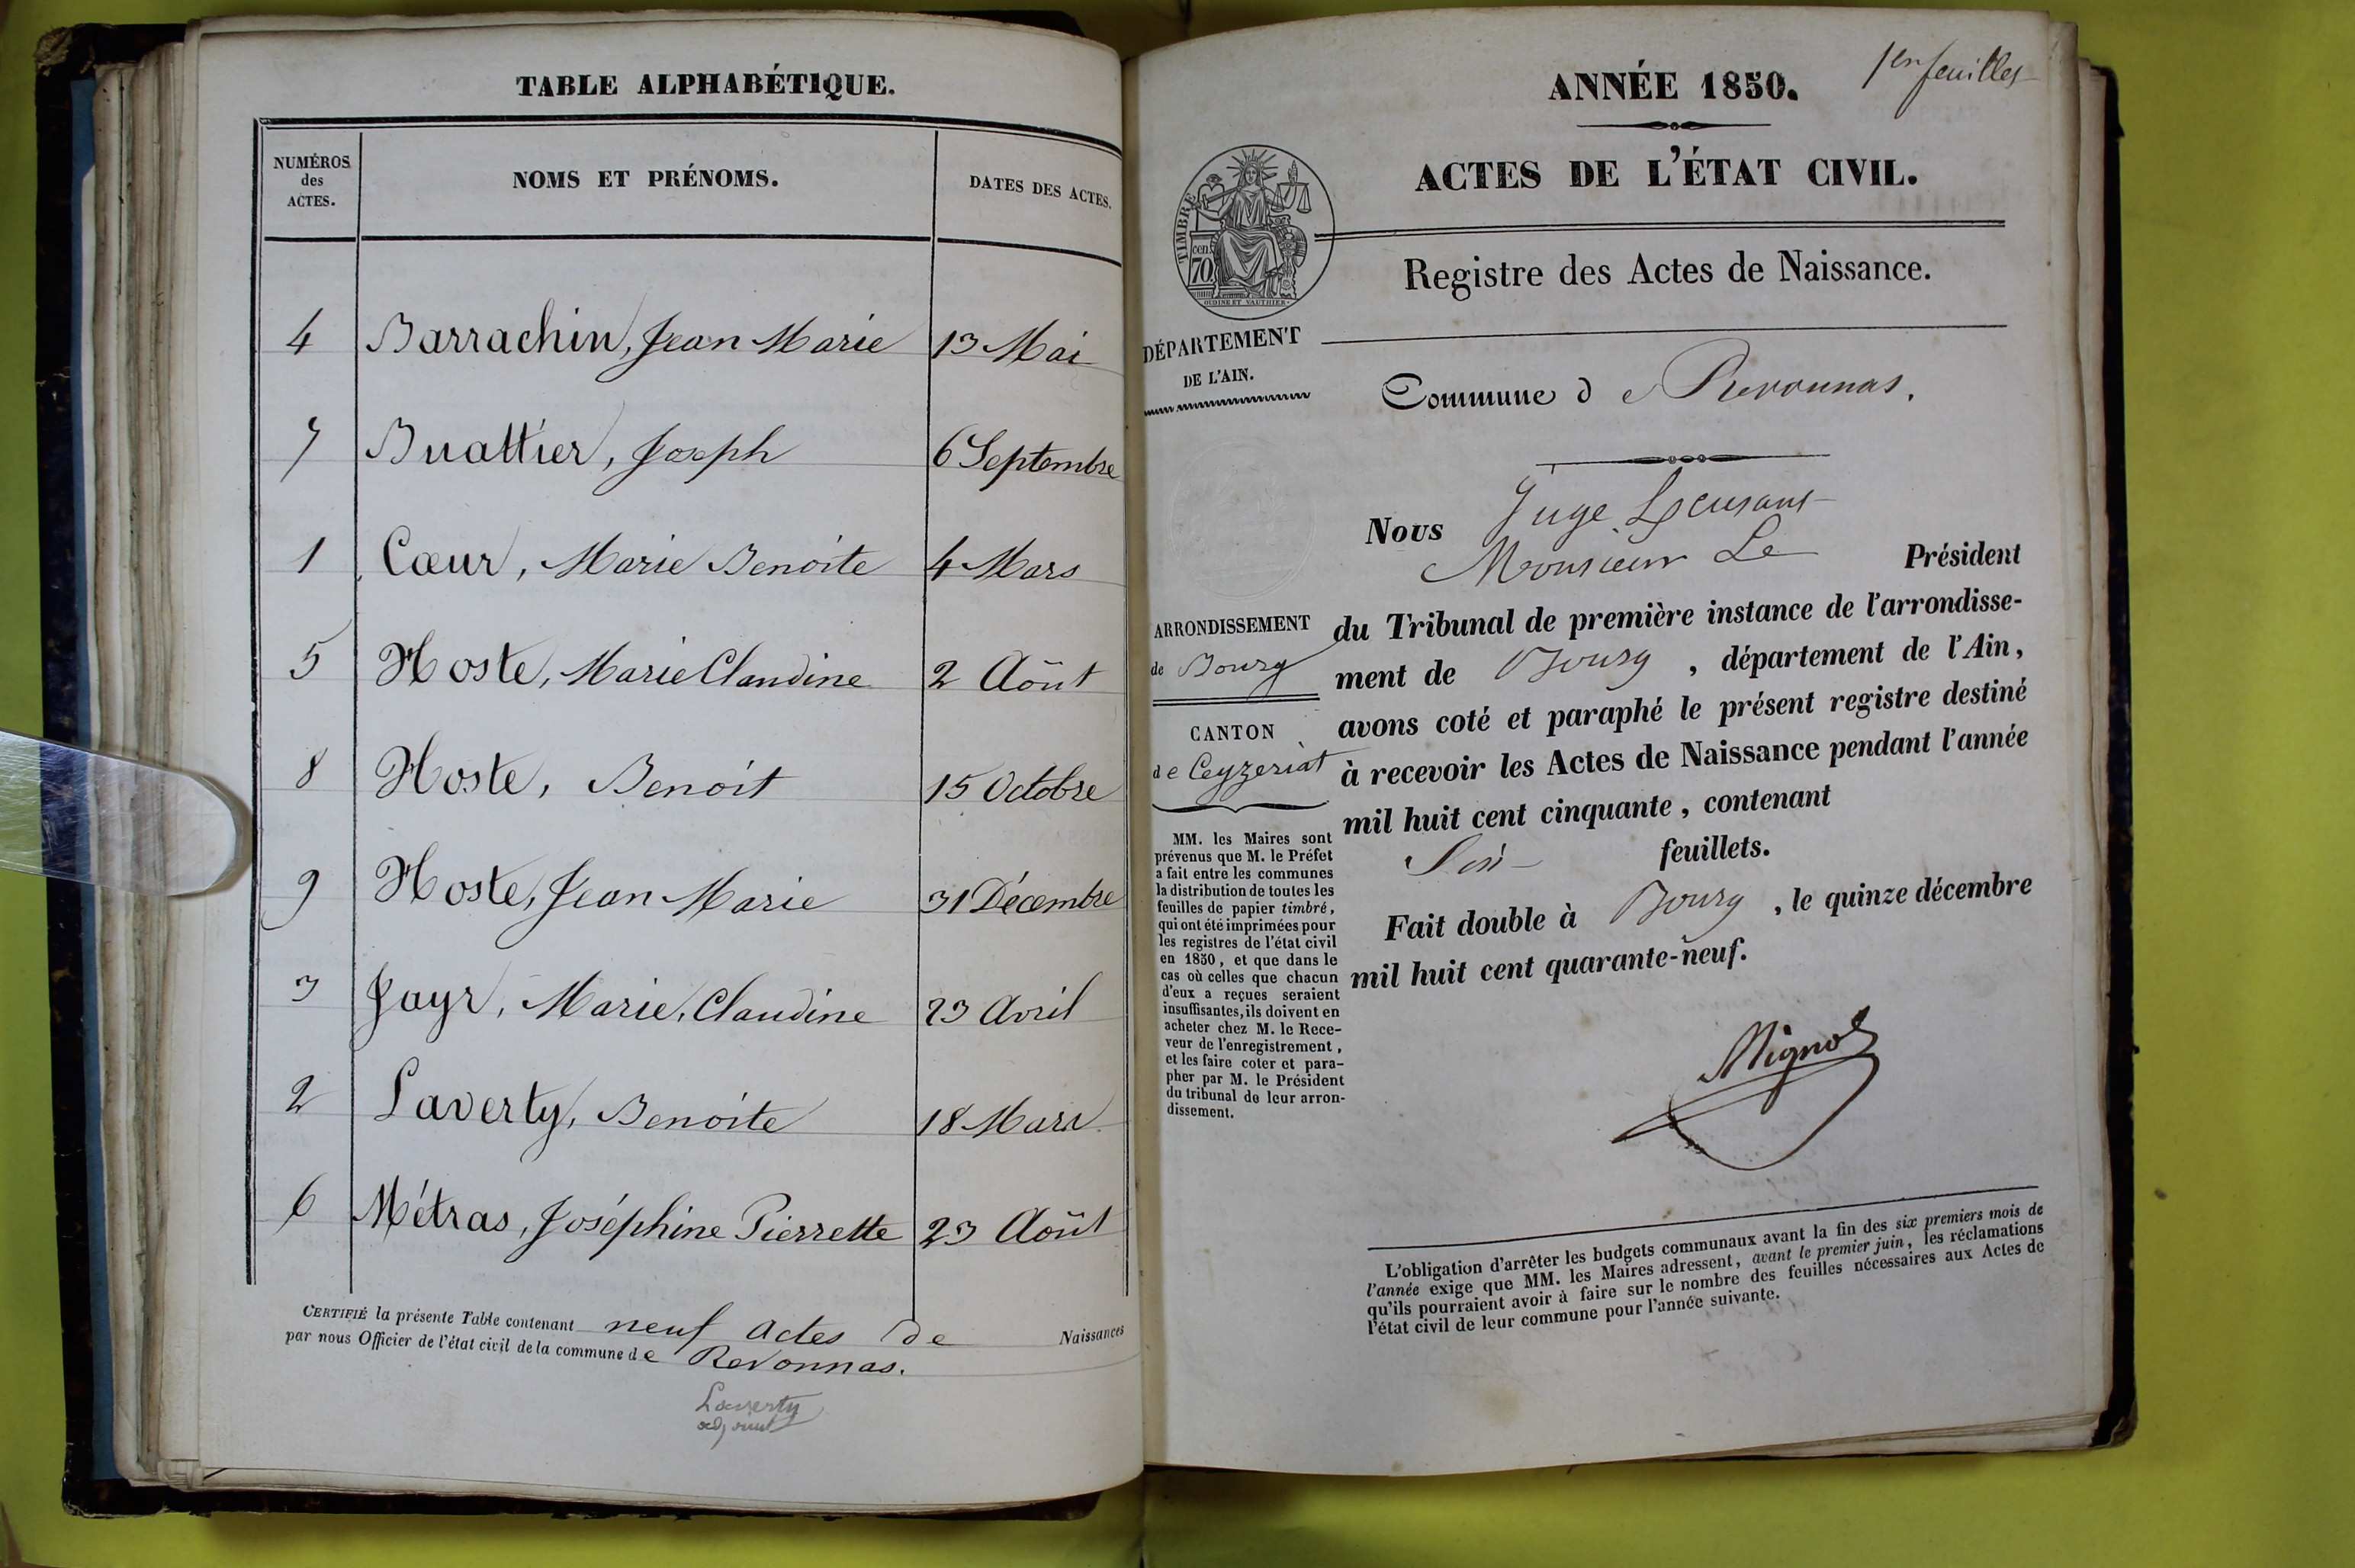 TABLE ALPHABÉTIQUE.
NUMÉROS
des
ACTES.
NOMS ET PRÉNOMS.
DATES DES ACTES.
4 Barrachin, Jean Marie 13 Mai
7 Buattier, Joseph 6 Septembre
1 Cœur, Marie Benoite 4 Mars
5 Hoste, Marie Claudine 2 Août
8 Hoste, Benoit 15 Octobre
9 Hoste, Jean Marie 31 Décembre
3 Jayr, Marie, Claudine 23 Avril
2 Laverty, Benoite 18 Mars
6 Métras, Joséphine Pierrette 23 Août
CERTIFIÉ la présente Table contenant neuf actes de Naissances
par nous Officier de l'état civil de la commune de Revonnas.
Laverty
adjoint
ANNÉE 1850.
feuillet
ACTES DE L'ÉTAT CIVIL.
TIMBRE
cen.
70
OUDINE ET VAUTHIER
Registre des Actes de Naissance.
DÉPARTEMENT
DE L'AIN.
Commune de Revonnas.
ARRONDISSEMENT
de Bourg
CANTON
de Ceyzeriat
MM. les Maires sont
prévenus que M. le Préfet
a fait entre les communes
la distribution de toutes les
feuilles de papier timbré,
qui ont été imprimées pour
les registres de l'état civil
en 1850, et que dans le
cas où celles que chacun
d'eux a reçues seraient
insuffisantes, ils doivent en
acheter chez M. le Rece-
veur de l'enregistrement,
et les faire coter et para-
pher par M. le Président
du tribunal de leur arron-
dissement.
Nous Juge
Monsieur Le Président
du Tribunal de première instance de l'arrondisse-
ment de Bourg, département de l'Ain,
avons coté et paraphé le présent registre destiné
à recevoir les Actes de Naissance pendant l'année
mil huit cent cinquante, contenant
feuillets.
Fait double à Bourg, le quinze décembre
mil huit cent quarante-neuf.
L'obligation d'arrêter les budgets communaux avant la fin des six premiers mois de
l'année exige que MM. les Maires adressent, avant le premier juin, les réclamations
qu'ils pourraient avoir à faire sur le nombre des feuilles nécessaires aux Actes de
l'état civil de leur commune pour l'année suivante.